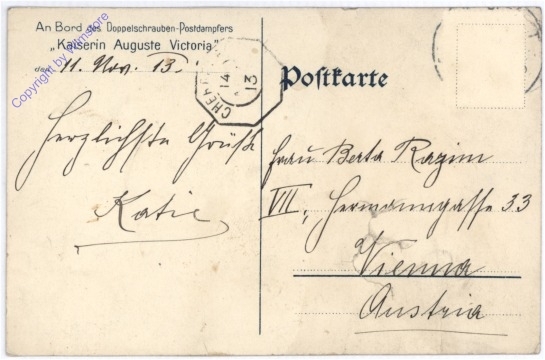 An Bord des Doppelschrauben-Postdampfers
„Kaiserin Auguste Victoria"
den 11. Nov. 13.
Herzlichste Grüße
Katie
CHER
14
13
Postkarte
Frau Berta Razim
VII, Hermanngasse 33
Vienna
Austria
Copyright by Wilmstore